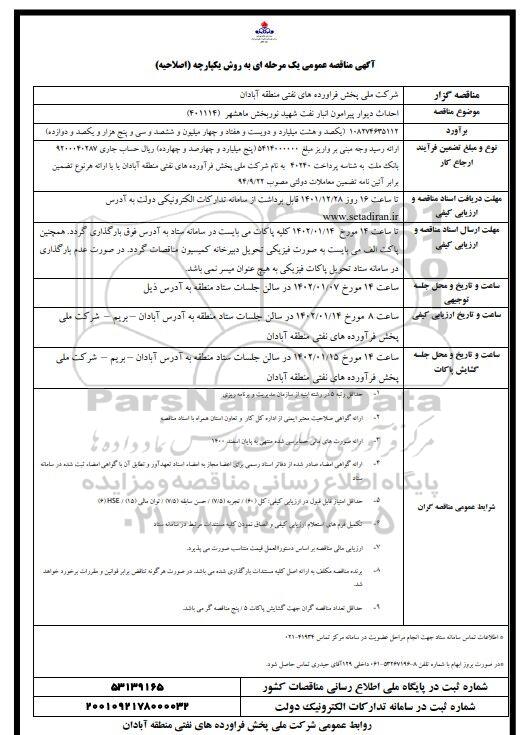 آگهی مناقصه عمومی یک مرحله ای به روش یکپارچه (اصلاحیه)
مناقصه گزار
شرکت ملی پخش فرآورده های نفتی منطقه آبادان
موضوع مناقصه
احداث دیوار پیرامون انبار نفت شهید نوربخش ماهشهر (۴۰۱۱۱۴)
برآورد
۱۰۸۲۷۴۶۳۵۱۱۲ (یکصد و هشت میلیارد و دویست و هفتاد و چهار میلیون و ششصد و سی و پنج هزار و یکصد و دوازده)
نوع و مبلغ تضمین فرآیند
ارجاع کار
ارائه رسید وجه مبنی بر واریز مبلغ ۵۴۱۴۰۰۰۰۰۰ (پنج میلیارد و چهارصد و چهارده) ریال حساب جاری ۹۲۰۰۰۴۰۲۸۷
بانک ملت به شناسه پرداخت ۴۰۲۴۰ به نام شرکت ملی پخش فرآورده های نفتی منطقه آبادان یا یا ارائه هر نوع تضمین
برابر آئین نامه تضمین معاملات دولتی مصوب ۹۴/۹/۲۲
مهلت دریافت اسناد مناقصه و
ارزیابی کیفی
تا ساعت ۱۶ روز ۱۴۰۱/۱۲/۲۸ قابل برداشت از سامانه تدارکات الکترونیکی دولت به آدرس
www.setadiran.ir
مهلت ارسال اسناد مناقصه و
ارزیابی کیفی
تا ساعت ۱۴ مورخ ۱۴۰۲/۰۱/۱۴ کلیه پاکات می بایست در سامانه ستاد به آدرس فوق بارگذاری گردد. همچنین
پاکت الف می بایست به صورت فیزیکی تحویل دبیرخانه کمیسیون مناقصات گردد. در صورت عدم بارگذاری
در سامانه ستاد تحویل پاکات فیزیکی به هیچ عنوان میسر نمی باشد.
ساعت و تاریخ و محل جلسه
توجیهی
ساعت ۱۴ مورخ ۱۴۰۲/۰۱/۰۷ در سالن جلسات ستاد منطقه به آدرس ذیل
ساعت و تاریخ ارزیابی کیفی
ساعت ۸ مورخ ۱۴۰۲/۰۱/۱۴ در سالن جلسات ستاد منطقه به آدرس آبادان – بریم – شرکت ملی
پخش فرآورده های نفتی منطقه آبادان
ساعت و تاریخ و محل جلسه
گشایش پاکات
ساعت ۱۴ مورخ ۱۴۰۲/۰۱/۱۵ در سالن جلسات ستاد منطقه به آدرس آبادان – بریم – شرکت ملی
پخش فرآورده های نفتی منطقه آبادان
شرایط عمومی مناقصه گران
۱- حداقل رتبه ۵ در رشته ابنیه از سازمان مدیریت و برنامه ریزی
۲- ارائه گواهی صلاحیت معتبر ایمنی از اداره کل کار و تعاون استان همراه با اسناد مناقصه
۳- ارائه صورت های مالی حسابرسی شده منتهی به پایان اسفند ۱۴۰۰
۴- ارائه گواهی امضاء صادر شده از دفاتر اسناد رسمی برای اعضا مجاز به امضاء اسناد تعهدآور و تطابق آن با گواهی امضاء ثبت شده در سامانه
ستاد
۵- حداقل امتیاز قابل قبول در ارزیابی کیفی: کل (۶۰) / تجربه (۷/۵) / حسن سابقه (۷/۵) / توان مالی (۱۵) / HSE (۶)
۶- تکمیل فرم های استعلام ارزیابی کیفی و الصاق نمودن کلیه مستندات مرتبط در سامانه ستاد
۷- ارزیابی مالی مناقصه بر اساس دستورالعمل قیمت متناسب صورت می پذیرد.
۸- برنده مناقصه مکلف به ارائه اصل کلیه مستندات بارگذاری شده می باشد. در صورت هرگونه تناقض برابر قوانین و مقررات برخورد خواهد
شد.
۹- حداقل تعداد مناقصه گران جهت گشایش پاکات ۵ / پنج مناقصه گر می باشد.
* اطلاعات تماس سامانه ستاد جهت انجام مراحل عضویت در سامانه مرکز تماس ۴۱۹۳۴-۰۲۱
*در صورت بروز ابهام با شماره تلفن ۸-۵۳۲۶۷۱۹۶-۰۶۱ داخلی ۱۲۹ آقای حیدری تماس حاصل شود.
شماره ثبت در پایگاه ملی اطلاع رسانی مناقصات کشور
۵۳۱۳۹۱۶۵
شماره ثبت در سامانه تدارکات الکترونیک دولت
۲۰۰۱۰۹۲۱۷۸۰۰۰۰۳۲
روابط عمومی شرکت ملی پخش فراورده های نفتی منطقه آبادان
ParsNamadData
مرکز فرآوری اطلاعات پارس نماد داده ها
پایگاه اطلاع رسانی مناقصه و مزایده
۰۲۱-۸۸۳۴۹۶۷۰-۵